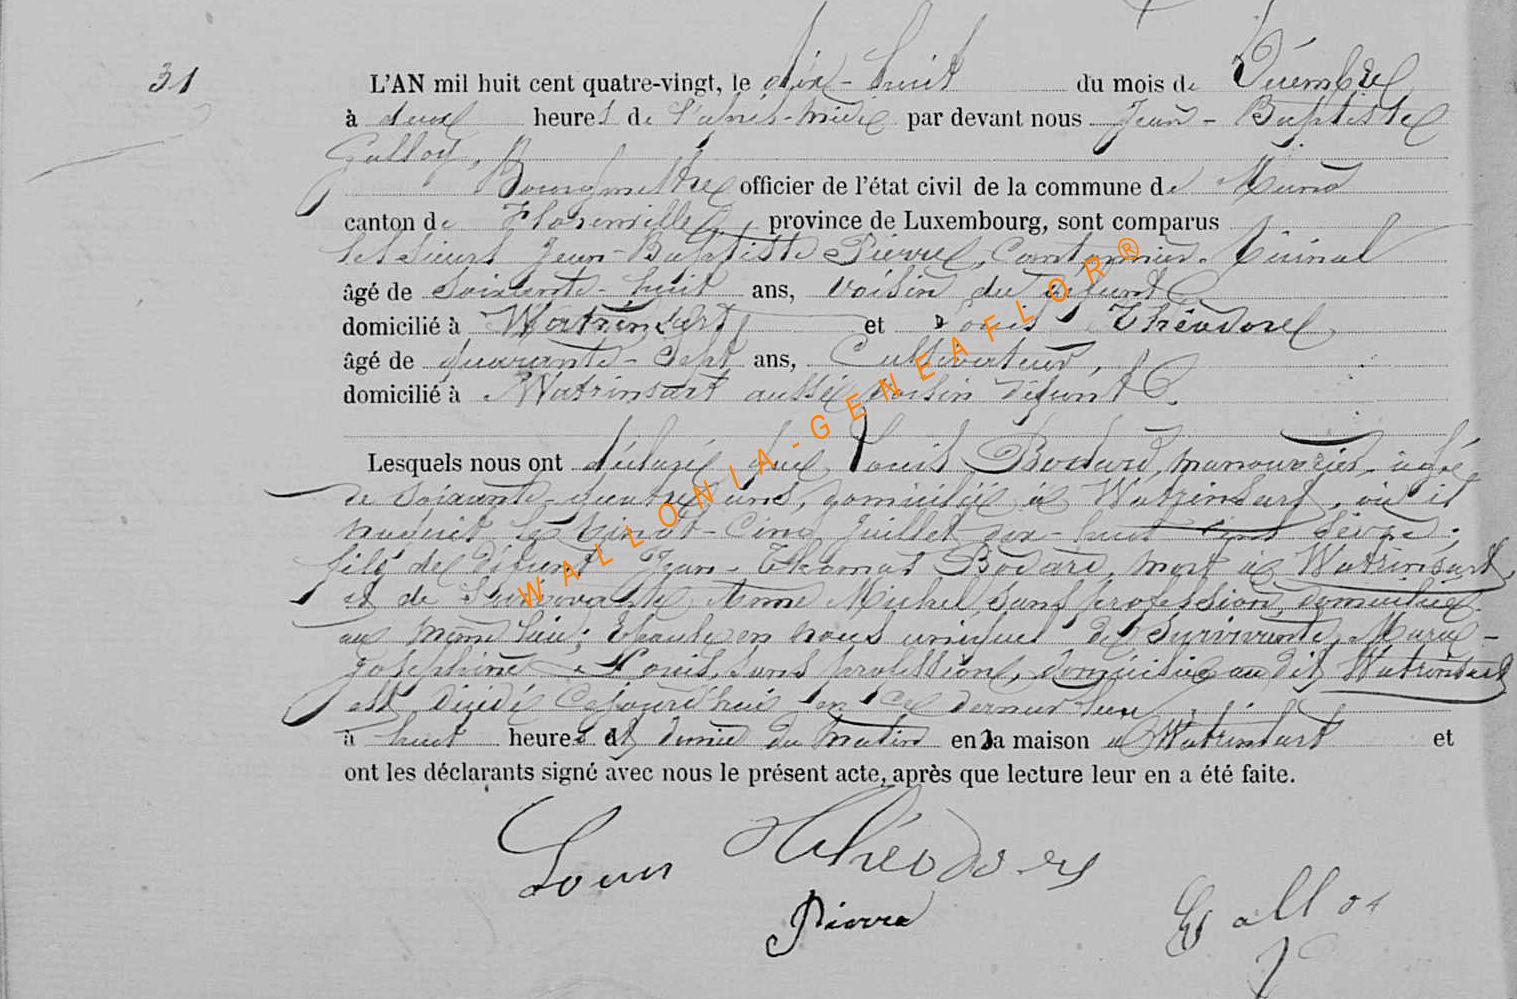 31
L'AN mil huit cent quatre-vingt, le dix-huit du mois de Décembre
à deux heures de l'après-midi par devant nous Jean-Baptiste
Galloy,
Bourgmestre officier de l'état civil de la commune de Muno
canton de Florenville province de Luxembourg, sont comparus
les sieurs Jean-Baptiste Pierre, Cantonnier vicinal
âgé de soixante-huit ans, voisin du défunt
domicilié à Watrinsart et Louis Théodore
âgé de quarante-sept ans, Cultivateur,
domicilié à Watrinsart aussi voisin défunt
Lesquels nous ont déclaré que Louis Bodard, manouvrier, âgé
de soixante-quatre ans, domicilié à Watrinsart, où il
naquit le vingt-cinq Juillet dix-huit cent seize;
fils de défunt Jean-Thomas Bodard, mort à Watrinsart
et de Michel, sans profession, domiciliée
au même lieu; époux en noces uniques de survivante, Marie-
Joséphine Louis, sans profession, domiciliée au dit Watrinsart
est décédé cejourd'hui en ce dernier lieu
à huit heures et demie du matin en la maison à Watrinsart et
ont les déclarants signé avec nous le présent acte, après que lecture leur en a été faite.
Louis Théodore
Pierre
Galloy
WALLONIA-GENEAFLOR®